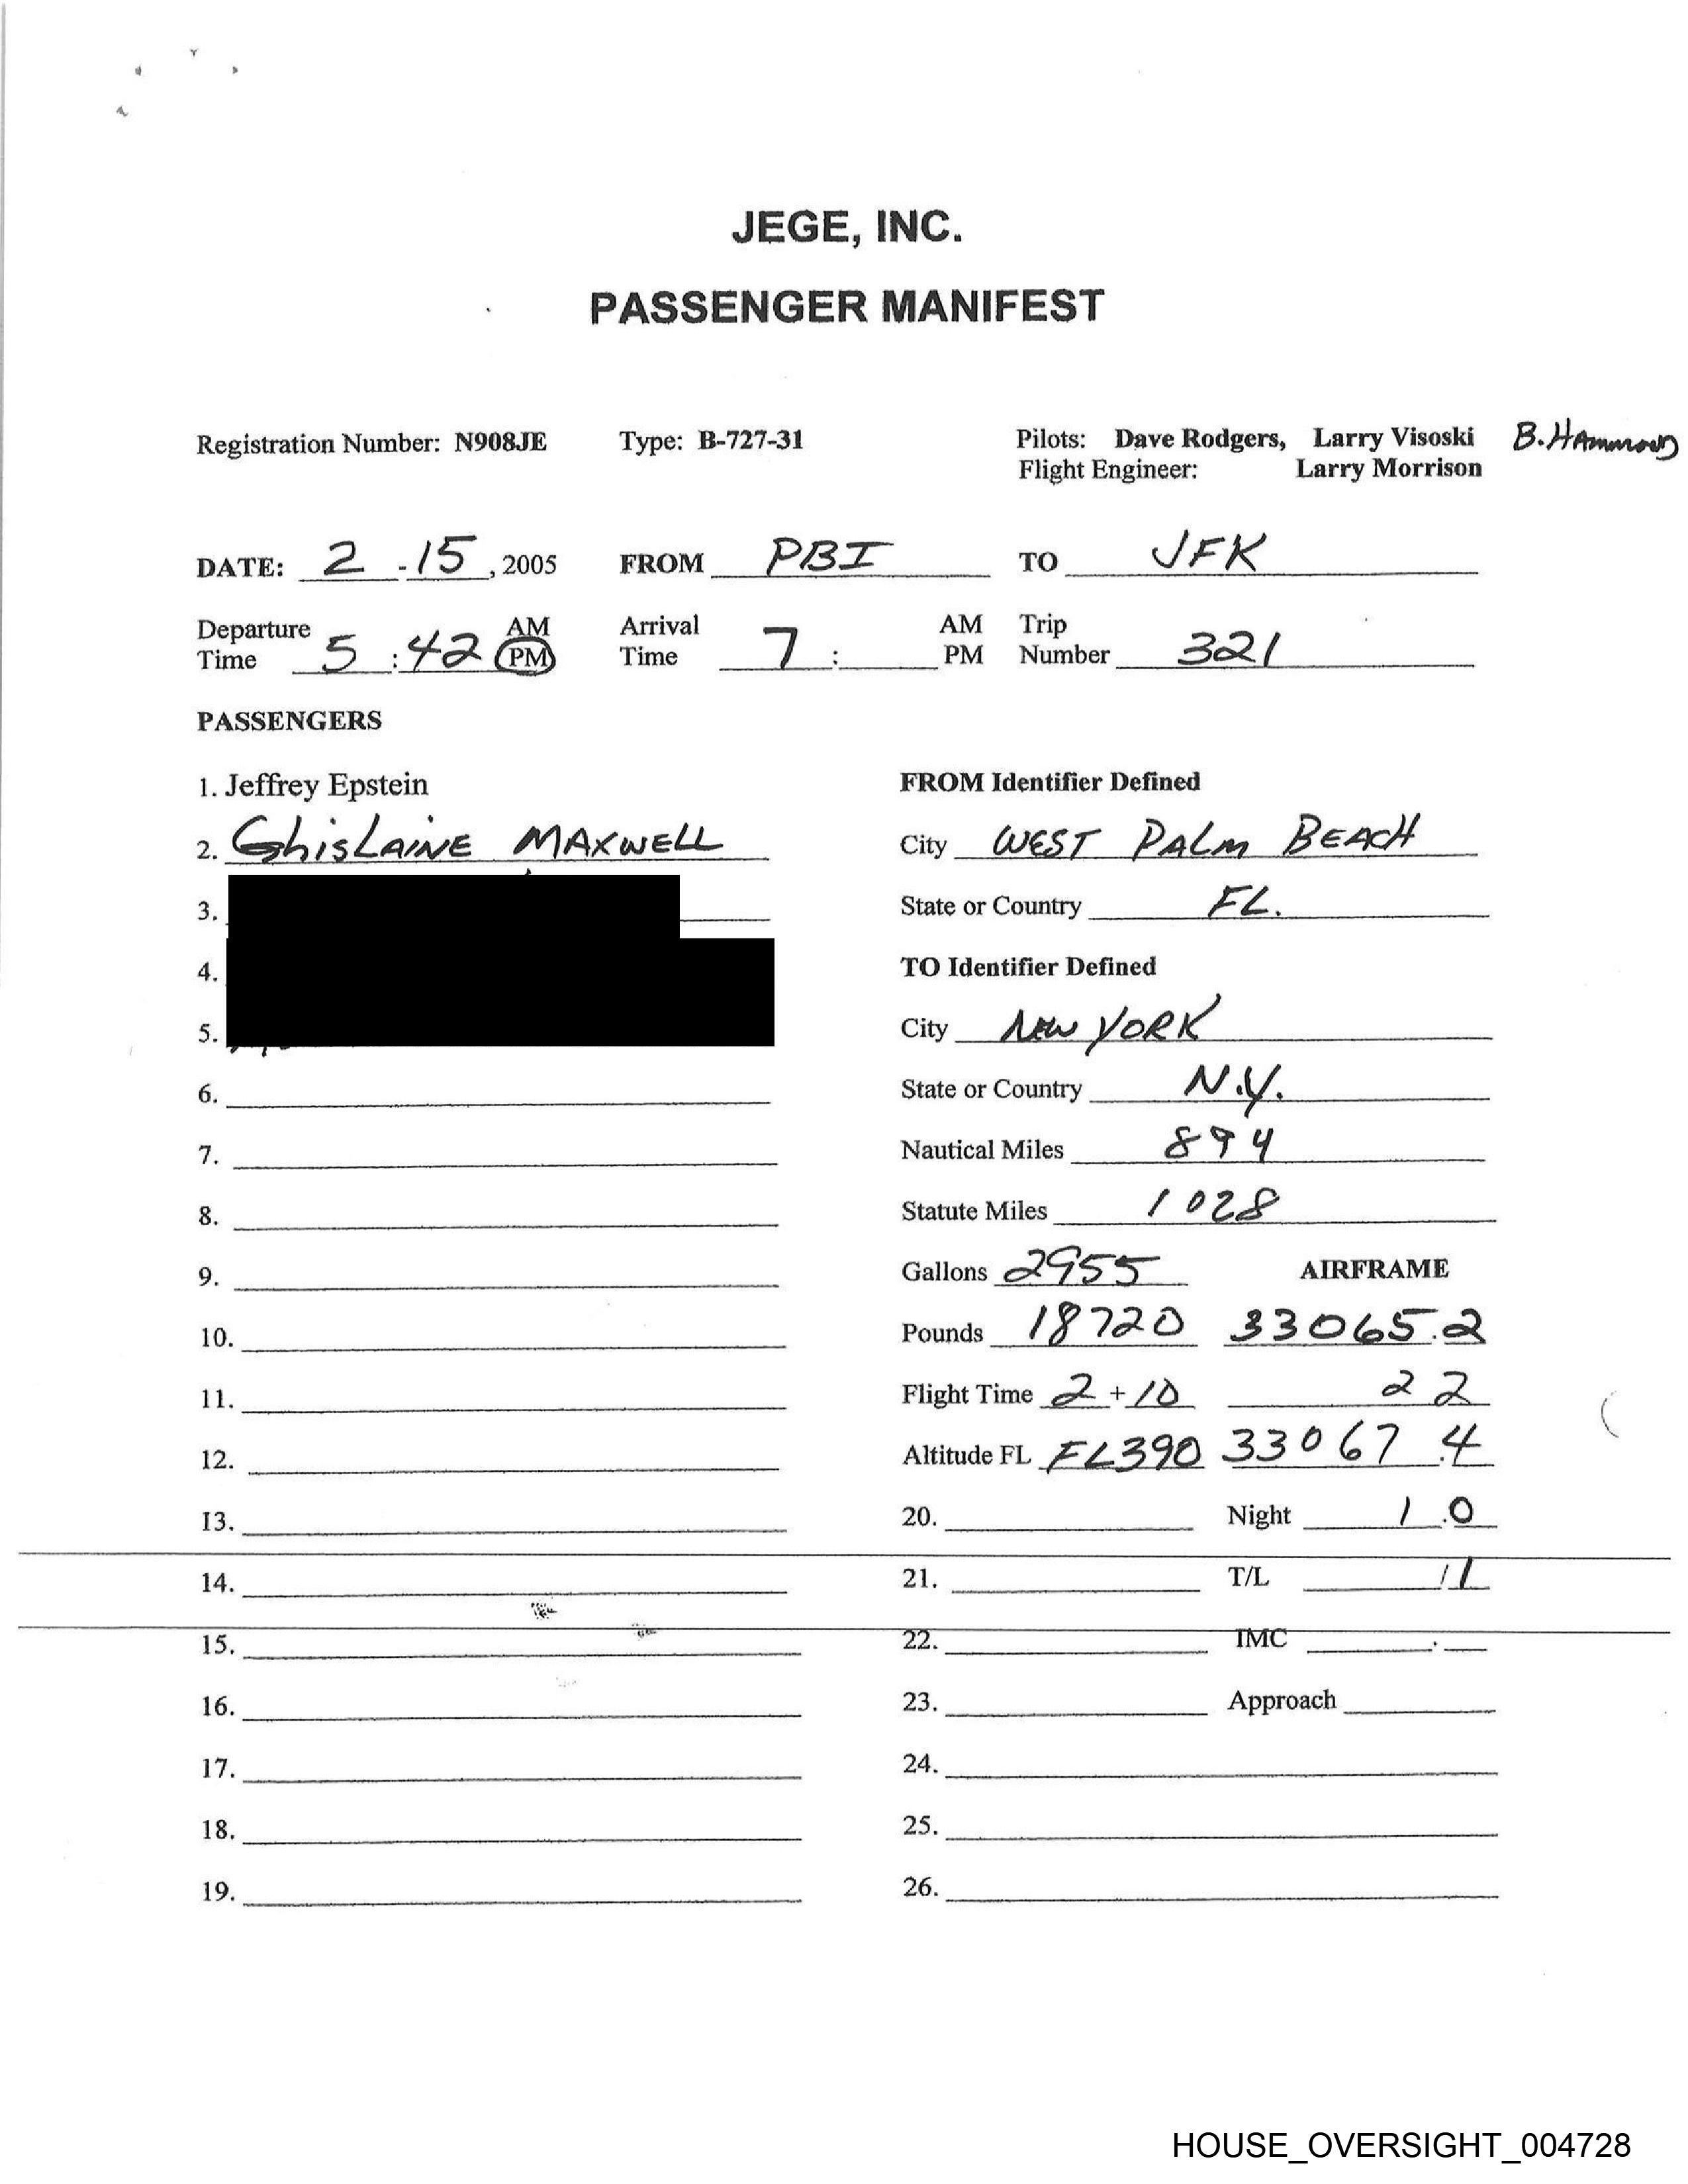 JEGE, INC.
PASSENGER MANIFEST
Registration Number: N908JE Type: B-727-31 Pilots: Dave Rodgers, Larry Visoski B. Hammond
Flight Engineer: Larry Morrison
DATE: 2 - 15, 2005 FROM PBI TO JFK
Departure Time 5:42 AM PM Arrival Time 7 : AM PM Trip Number 321
PASSENGERS
1. Jeffrey Epstein FROM Identifier Defined
2. GhisLAINE MAXWELL City WEST PALM BEACH
3. State or Country FL.
4. TO Identifier Defined
5. City NEW YORK
6. State or Country N.Y.
7. Nautical Miles 894
8. Statute Miles 1028
9. Gallons 2955 AIRFRAME
10. Pounds 18720 33065.2
11. Flight Time 2 + 10 2 2
12. Altitude FL FL390 33067.4
13. 20. Night 1.0
14. 21. T/L 1/1
15. 22. IMC .
16. 23. Approach
17. 24.
18. 25.
19. 26.
HOUSE_OVERSIGHT_004728